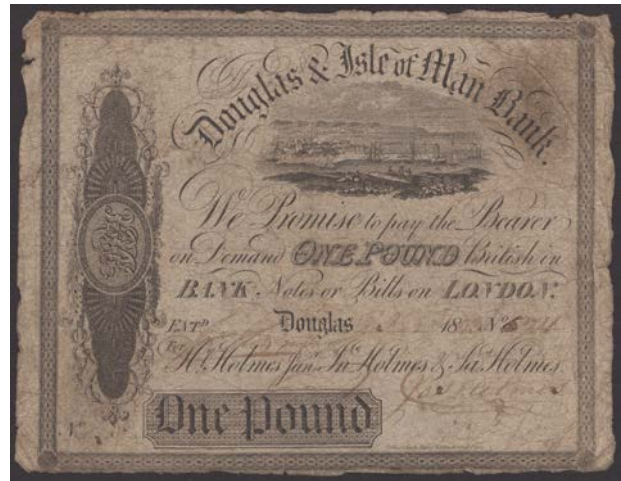 Douglas & Isle of Man Bank.
We Promise to pay the Bearer
on Demand ONE POUND British in
BANK Notes or Bills on LONDON.
ENTD Douglas 18 No
For Hy. Holmes Junr. Jno. Holmes & Jas. Holmes
One Pound
No